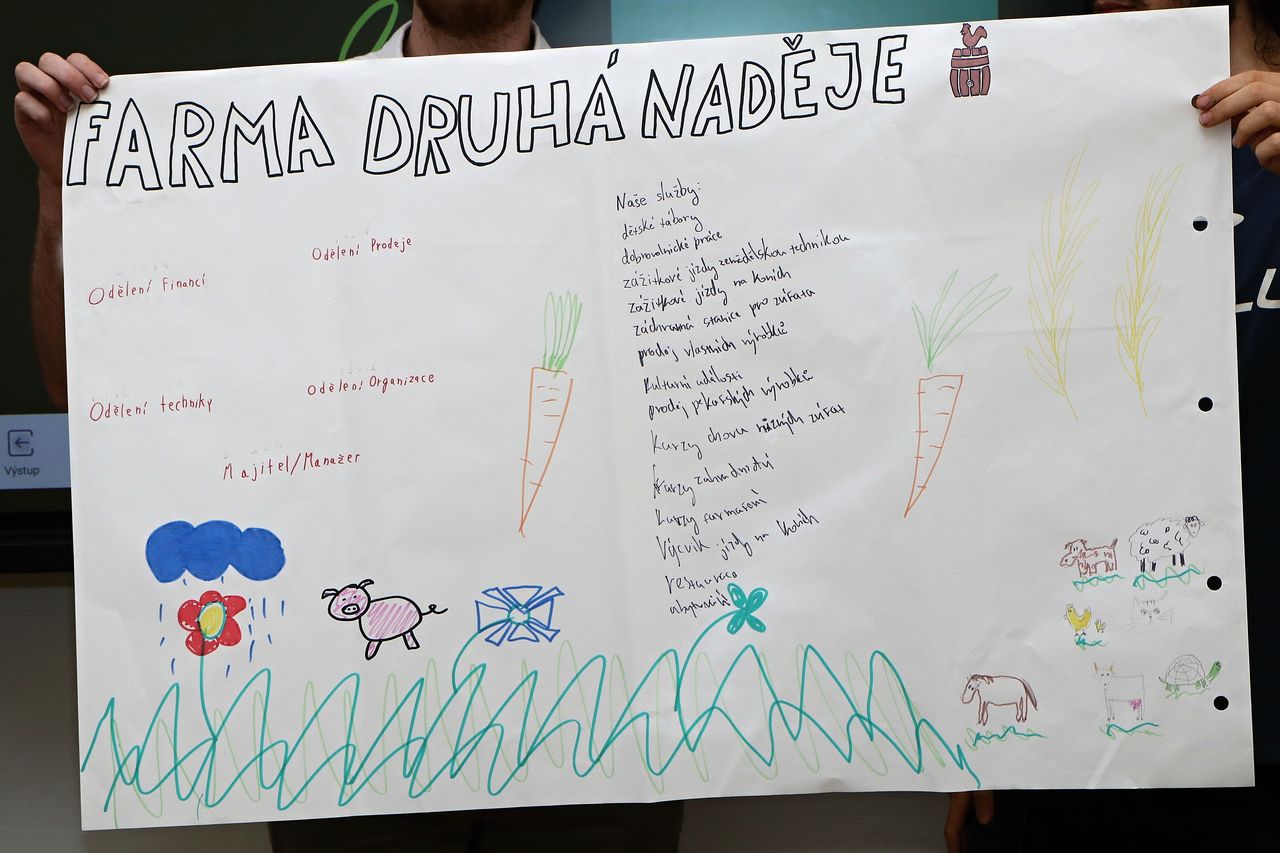 FARMA DRUHÁ NADĚJE
Oddělení Prodeje
Oddělení Financí
Oddělení Organizace
Oddělení techniky
Majitel/Manažer
Naše služby:
dětské tábory
dobrovolnické práce
zážitkové jízdy zemědělskou technikou
zážitkové jízdy na koních
záchranná stanice pro zvířata
prodej vlastních výrobků
kulturní události
prodej pekařských výrobků
kurzy chovu různých zvířat
kurzy zahradnictví
kurzy farmaření
Výcvik jízdy na koních
restaurace
ubytování
Výstup